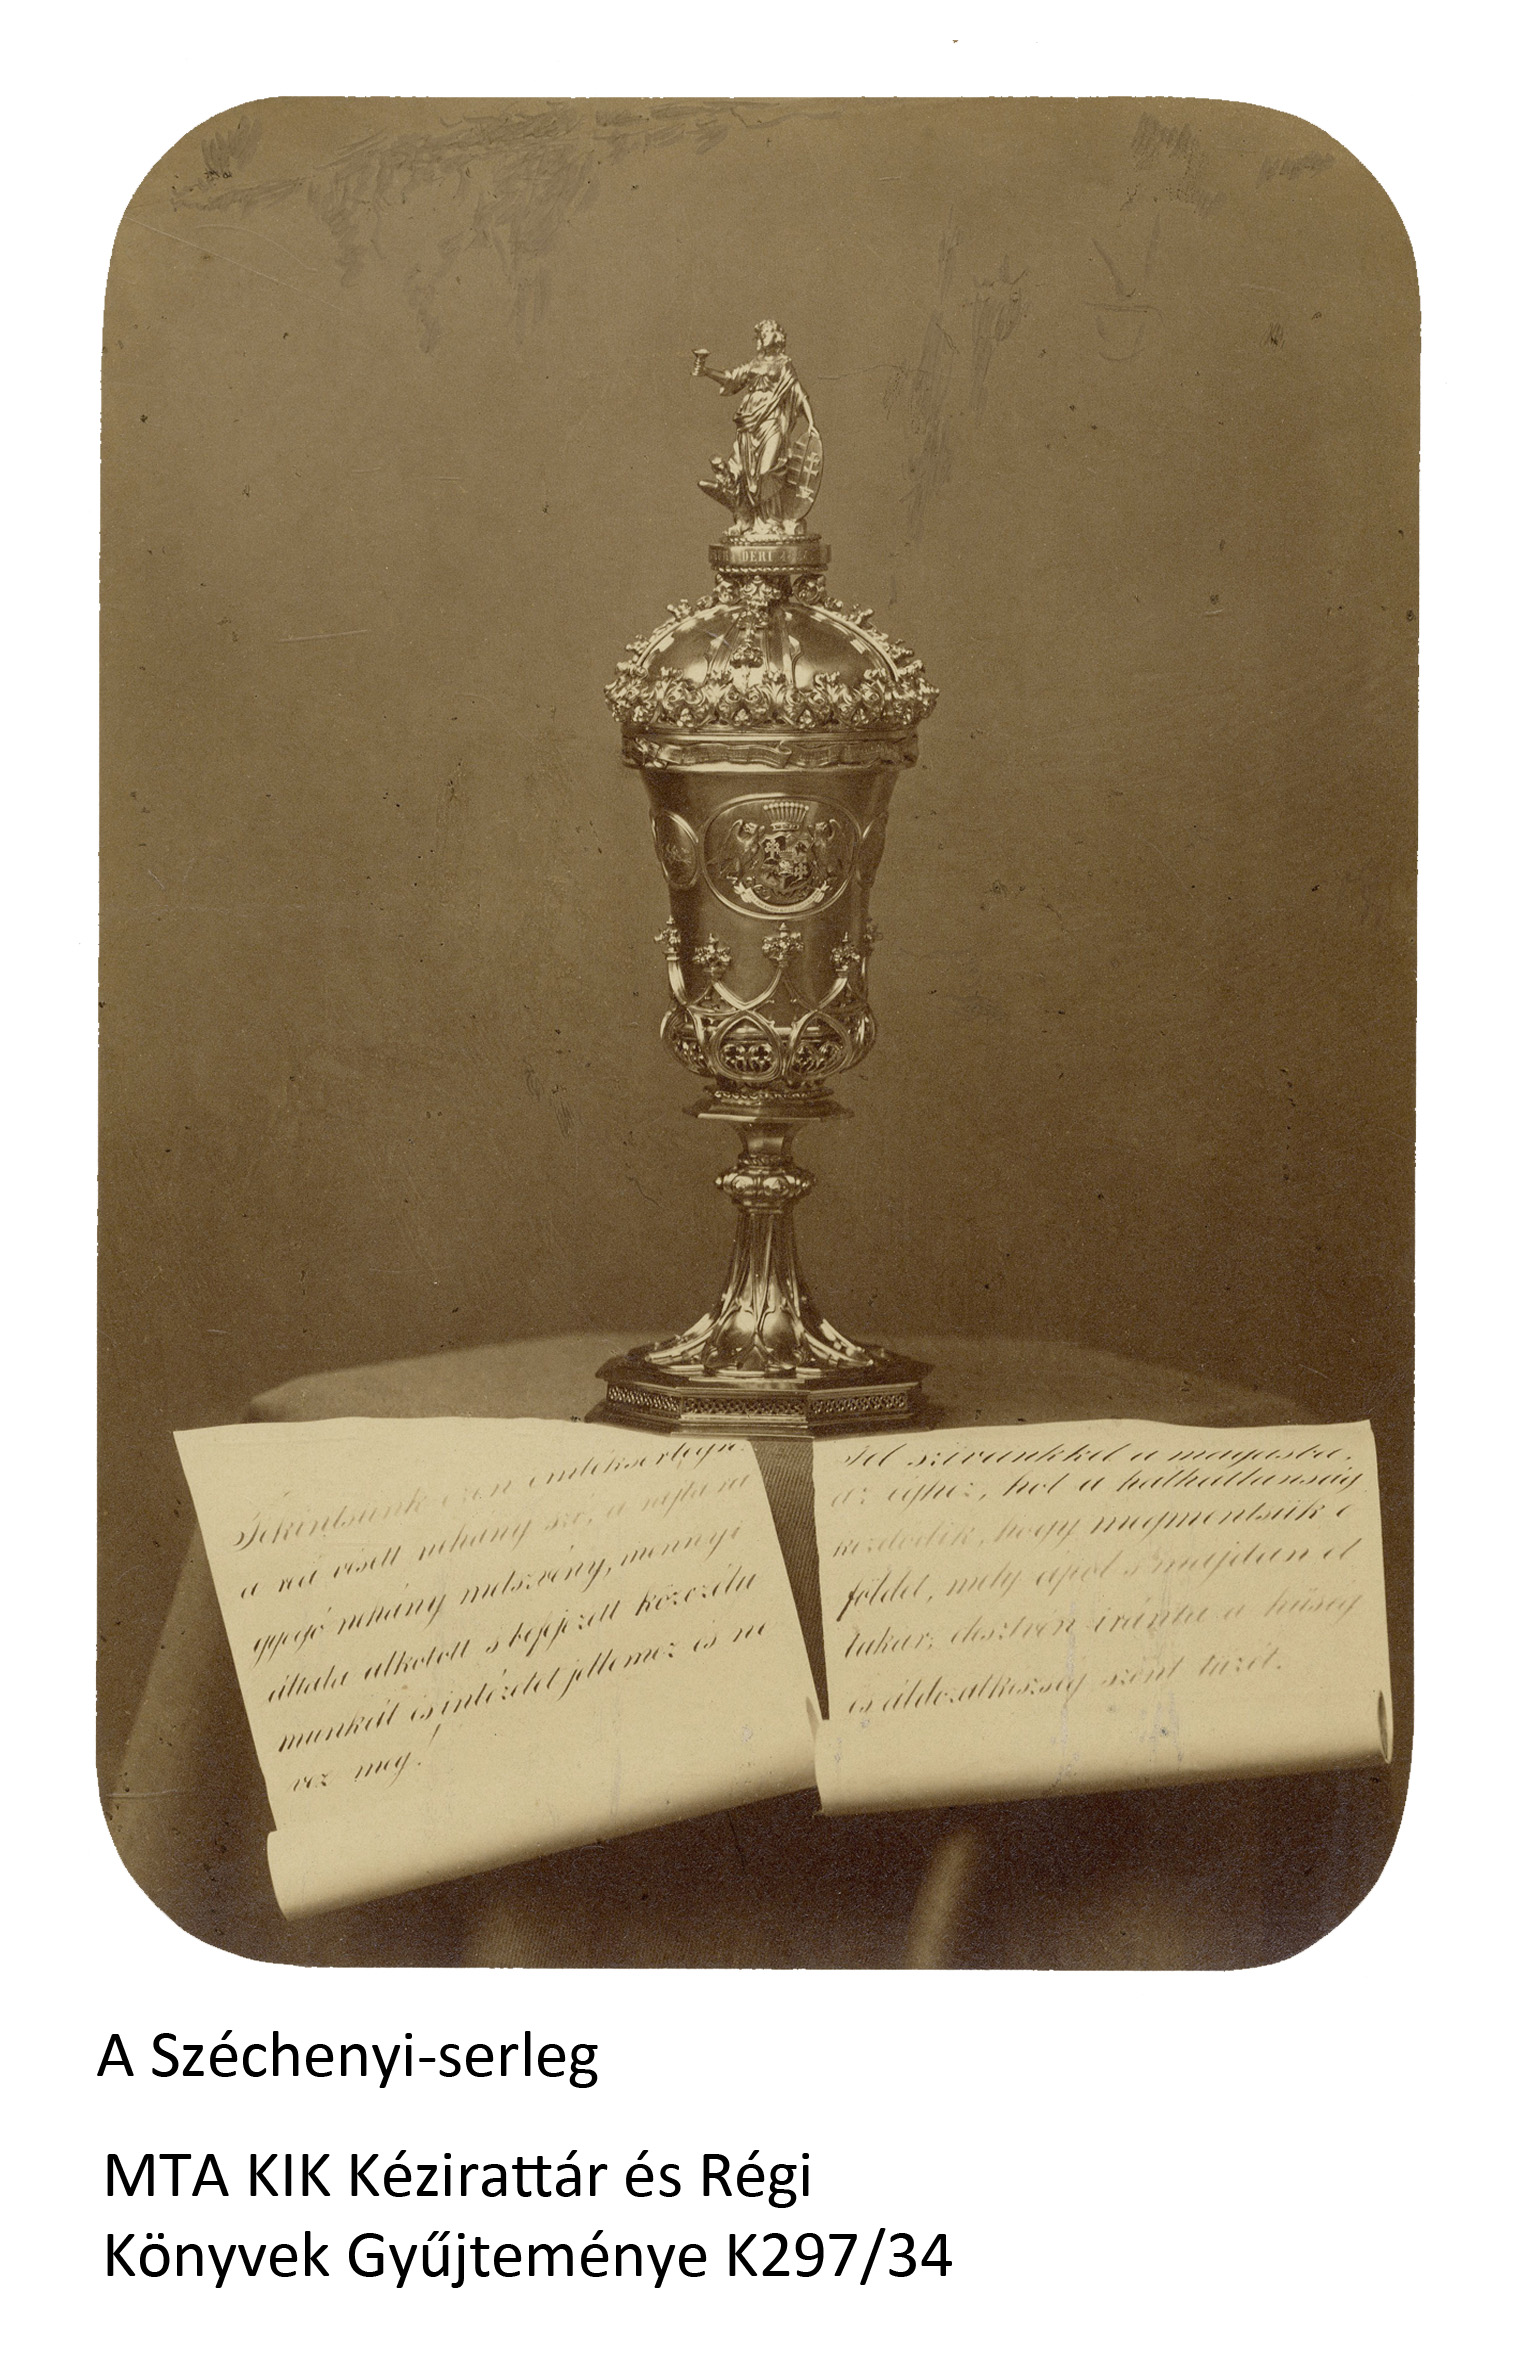 DERI
Tekintsünk ezen emlékserlegre.
a reá vésett néhány szó, a rajta ra
gyogó néhány metszvény, mennyi
általa alkotott s befejezett közczélu
munkát és intézetet jellemez és ne
vez meg!
Fel szivünkkel a magasba,
az éghez, hol a halhatlanság
kezdődik, hogy megmentsük e
földet, mely ápol s majdan el
takar, élesztvén irántta a hűség
és áldozatkészség szent tüzét.
A Széchenyi-serleg
MTA KIK Kézirattár és Régi
Könyvek Gyűjteménye K297/34